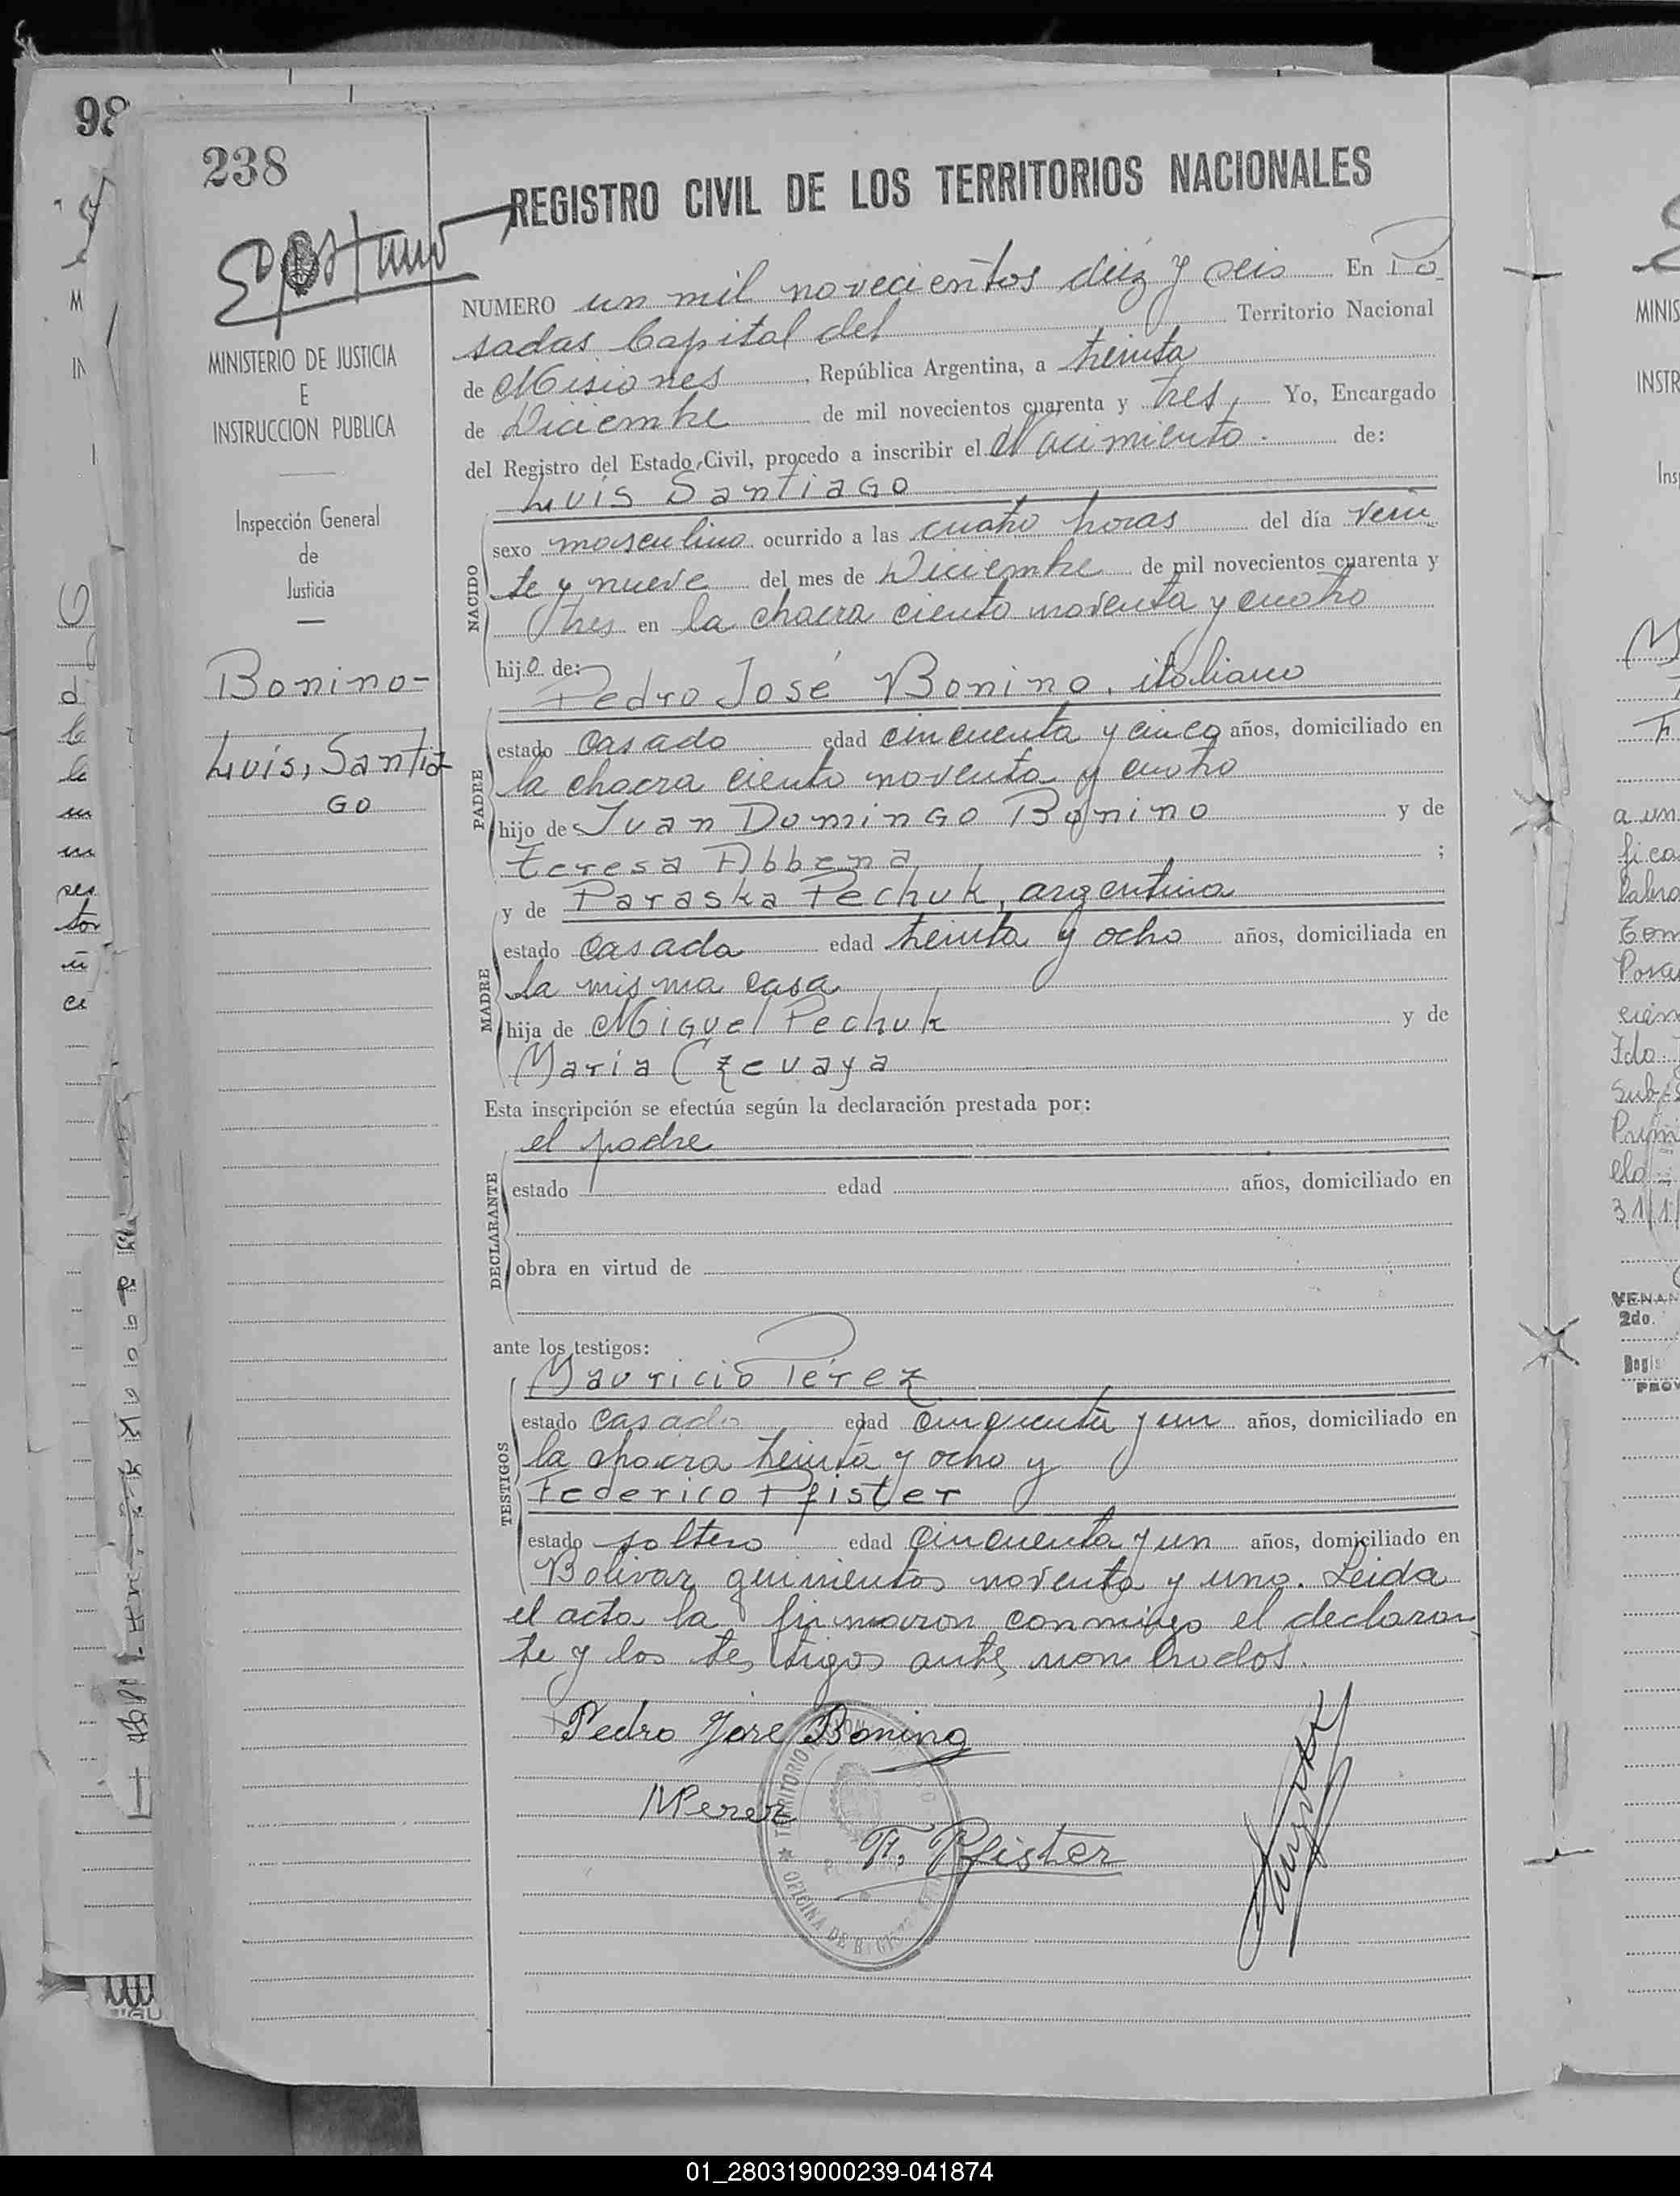 98
238
REGISTRO CIVIL DE LOS TERRITORIOS NACIONALES
NUMERO un mil novecientos diéz y seis En Po
sadas Capital del Territorio Nacional
de Misiones, República Argentina, a treinta
de Diciembre de mil novecientos cuarenta y tres, Yo, Encargado
del Registro del Estado Civil, procedo a inscribir el Nacimiento. de:
Luis Santiago
NACIDO
sexo masculino ocurrido a las cuatro horas del día vein
te y nueve del mes de Diciembre de mil novecientos cuarenta y
tres en la chacra ciento noventa y cuatro
hijo de:
Pedro José Bonino, italiano
PADRE
estado casado edad cincuenta y cinco años, domiciliado en
la chacra ciento noventa y cuatro
hijo de Juan Domingo Bonino y de
Teresa Abbena ;
y de Paraska Pechuk, argentina
MADRE
estado casada edad treinta y ocho años, domiciliada en
la misma casa
hija de Miguel Pechuk y de
María Czevaya
Esta inscripción se efectúa según la declaración prestada por:
el padre
DECLARANTE
estado edad años, domiciliado en
obra en virtud de
ante los testigos:
Mauricio Pérez
TESTIGOS
estado casado edad cincuenta y un años, domiciliado en
la chacra treinta y ocho y
Federico Pfister
estado soltero edad cincuenta y un años, domiciliado en
Bolivar quinientos noventa y uno. Leida
el acta la firmaron conmigo el declaran
te y los testigos ante nombrados.
Pedro José Bonino
MPerez
F. Pfister
TERRITORIO
OFICINA DE REGISTRO
MINISTERIO DE JUSTICIA
E
INSTRUCCION PUBLICA
Inspección General
de
Justicia
Bonino-
Luis, Santia
go
MINIS
INSTR
Ins
a un
VENAN
2do.
01_280319000239-041874